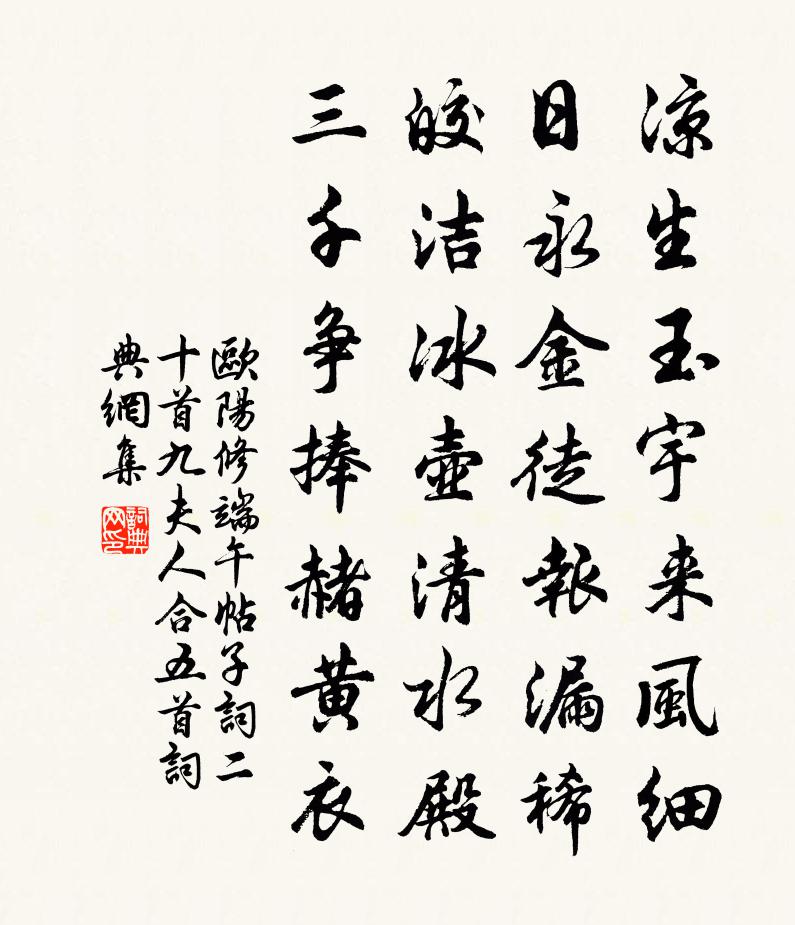 凉生玉宇来風細
日永金徒報漏稀
皎洁冰壺清水殿
三千争捧赭黃衣
歐陽修端午帖子詞二
十首九夫人合五首詞
典網集
詞典网印